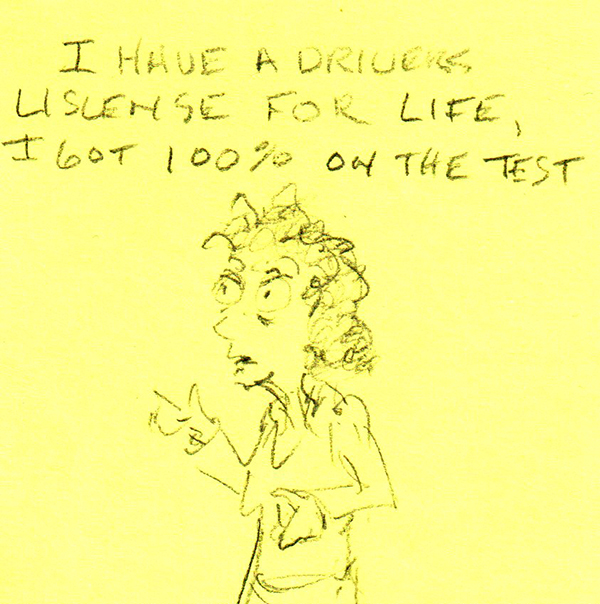 I HAVE A DRIVERS
LISLENSE FOR LIFE,
I GOT 100% ON THE TEST